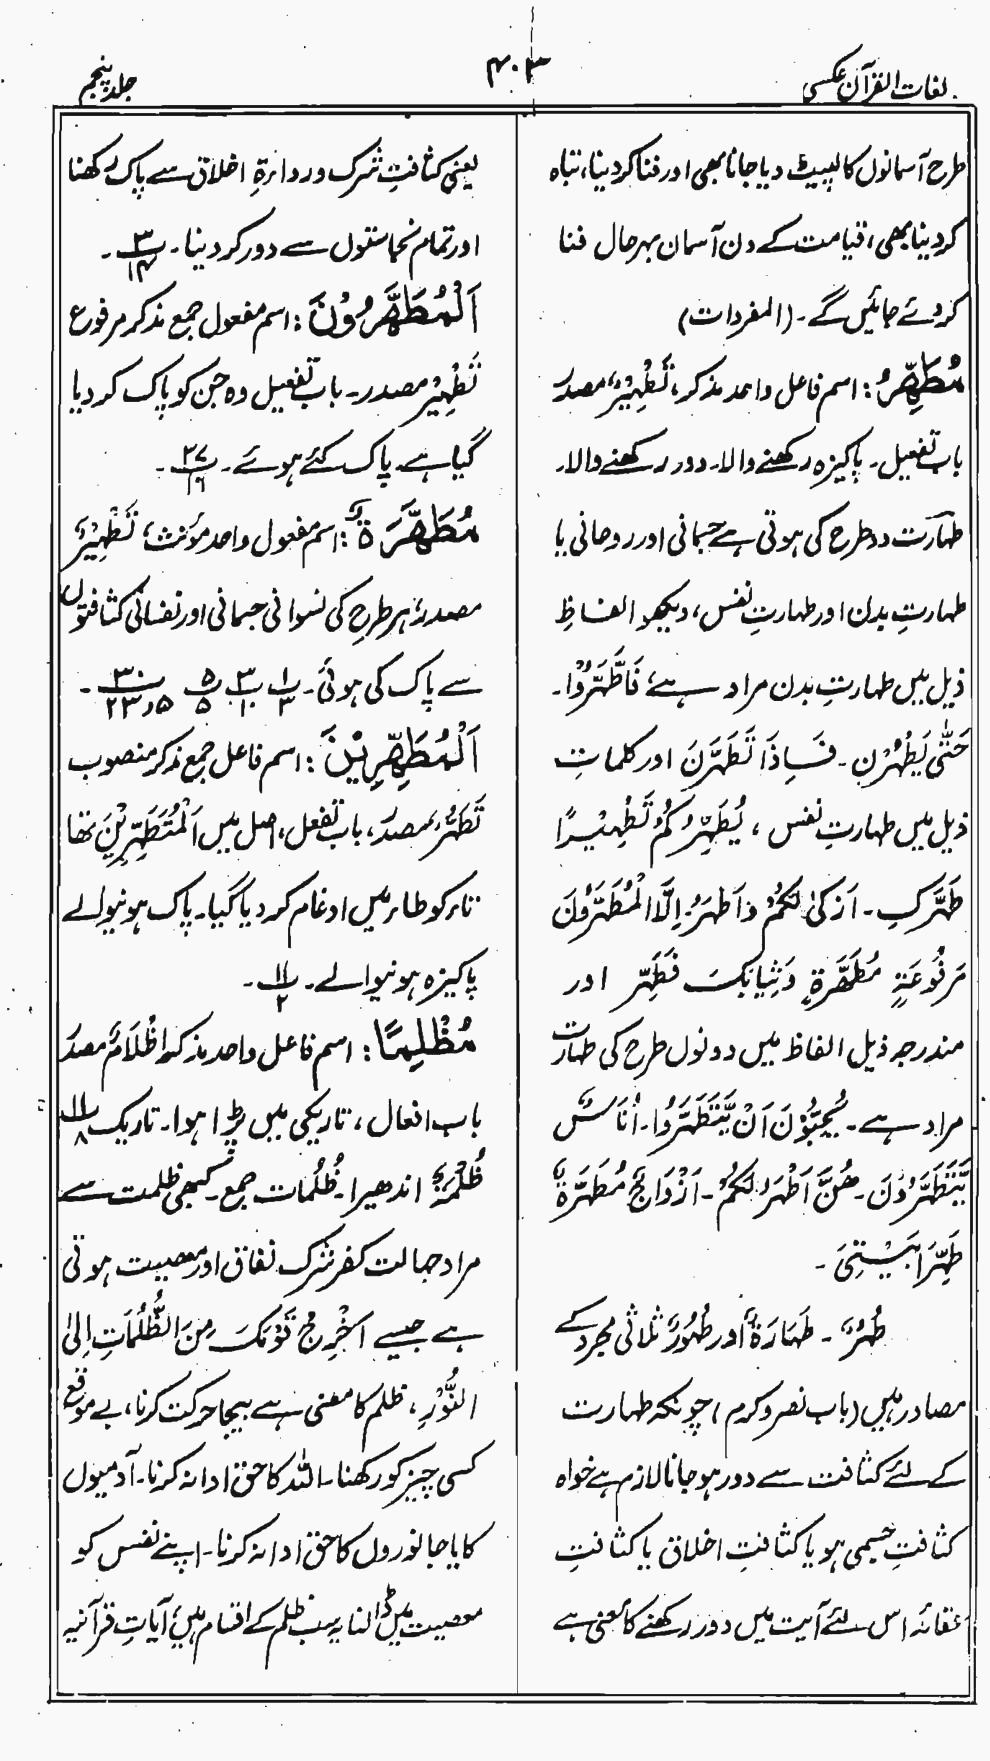 لغات القرآن عکسی
۴۰۳
جلد پنجم
طرح آسمانوں کا لپیٹ دیا جانا بھی اور فنا کر دینا، تباہ
کر دینا بھی، قیامت کے دن آسمان بہرحال فنا
کر دئے جائیں گے۔ (المفردات)
مُطَہِّرُ: اسم فاعل واحد مذکر، تَطْہِیْرٌ مصدر
باب تفعیل۔ پاکیزہ رکھنے والا۔ دور رکھنے والا۔
طہارت دو طرح کی ہوتی ہے جسمانی اور روحانی یا
طہارتِ بدن اور طہارتِ نفس، دیکھو الفاظِ
ذیل میں طہارتِ بدن مراد ہے، فَاطَّہَّرُوْا۔
حَتّٰی یَطْہُرْنَ۔ فَاِذَا تَطَہَّرْنَ اور کلمات
ذیل میں طہارتِ نفس، یُطَہِّرَکُمْ تَطْہِیْرًا
طَہَّرَکِ۔ اَزْکیٰ لَکُمْ وَاَطْہَرُ۔ اِلَّا الْمُطَہَّرُوْنَ
مَرْفُوْعَۃٍ مُطَہَّرَۃٍ وَثِیَابَکَ فَطَہِّرْ اور
مندرجہ ذیل الفاظ میں دونوں طرح کی طہارت
مراد ہے۔ یُحِبُّوْنَ اَنْ یَّتَطَہَّرُوْا۔ اُنَاسٌ
یَّتَطَہَّرُوْنَ۔ ھُنَّ اَطْہَرُ لَکُمْ۔ اَزْوَاجٌ مُطَہَّرَۃٌ
طَہِّرَا بَیْتِیَ۔
طُہْرٌ۔ طَہَارَۃٌ اور طُہُوْرٌ ثلاثی مجرد کے
مصادر ہیں (باب نصر و کرم) چونکہ طہارت
کے لئے کثافت سے دور ہو جانا لازم ہے خواہ
کثافتِ جسمی ہو یا کثافتِ اخلاق یا کثافتِ
عقائد اس لئے آیت میں دور رکھنے کا معنی ہے
یعنی کثافتِ شرک و رذائرۃِ اخلاق سے پاک رکھنا
اور تمام نجاستوں سے دور کر دینا۔ پ ۳/۱۴۔
اَلْمُطَہَّرُوْنَ: اسم مفعول جمع مذکر مرفوع
تَطْہِیْرٌ مصدر۔ باب تفعیل وہ جن کو پاک کر دیا
گیا ہے۔ پاک کئے ہوئے۔ پ ۲۷/۱۶۔
مُطَہَّرَۃٌ: اسم مفعول واحد مؤنث، تَطْہِیْرٌ
مصدر، ہر طرح کی نسوانی جسمانی اور نفسانی کثافتوں
سے پاک کی ہوئی۔ پ ۱/۳ پ ۳/۱۰ پ ۵/۵ پ ۳۰/۵ و ۲۳۔
اَلْمُطَہِّرِیْنَ: اسم فاعل جمع مذکر منصوب
تَطَہُّرٌ مصدر، باب تفعل، اصل میں اَلْمُتَطَہِّرِیْنَ تھا
تاء کو طاء میں ادغام کر دیا گیا۔ پاک ہونیوالے
پاکیزہ ہونیوالے۔ پ ۱۱/۲۔
مُظْلِمًا: اسم فاعل واحد مذکر اِظْلَامٌ مصدر
باب افعال، تاریکی میں پڑا ہوا۔ تاریک پ ۱۱/۸
ظُلْمَۃٌ اندھیرا۔ ظُلُمات جمع۔ کبھی ظلمت سے
مراد جہالت کفر شرک نفاق اور معصیت ہوتی
ہے جیسے اَخْرِجْ قَوْمَکَ مِنَ الظُّلُمَاتِ اِلیٰ
النُّوْرِ، ظلم کا معنی ہے بیجا حرکت کرنا، بے موقع
کسی چیز کو رکھنا۔ اللہ کا حق ادا نہ کرنا۔ آدمیوں
کا یا جانوروں کا حق ادا نہ کرنا۔ اپنے نفس کو
معصیت میں ڈالنا یہ سب ظلم کے اقسام ہیں، آیاتِ قرآنیہ